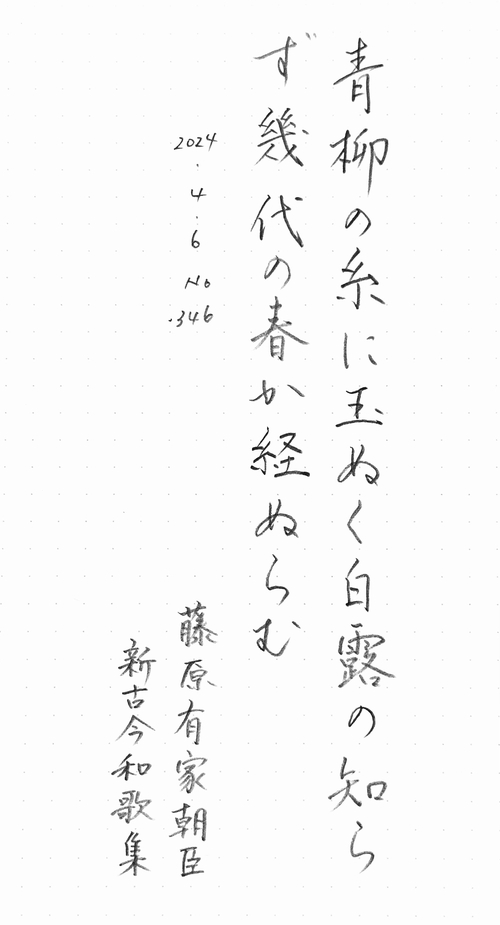 青柳の糸に玉ぬく白露の知ら
ず幾代の春か経ぬらむ
藤原有家朝臣
新古今和歌集
2024.4.6 No.346